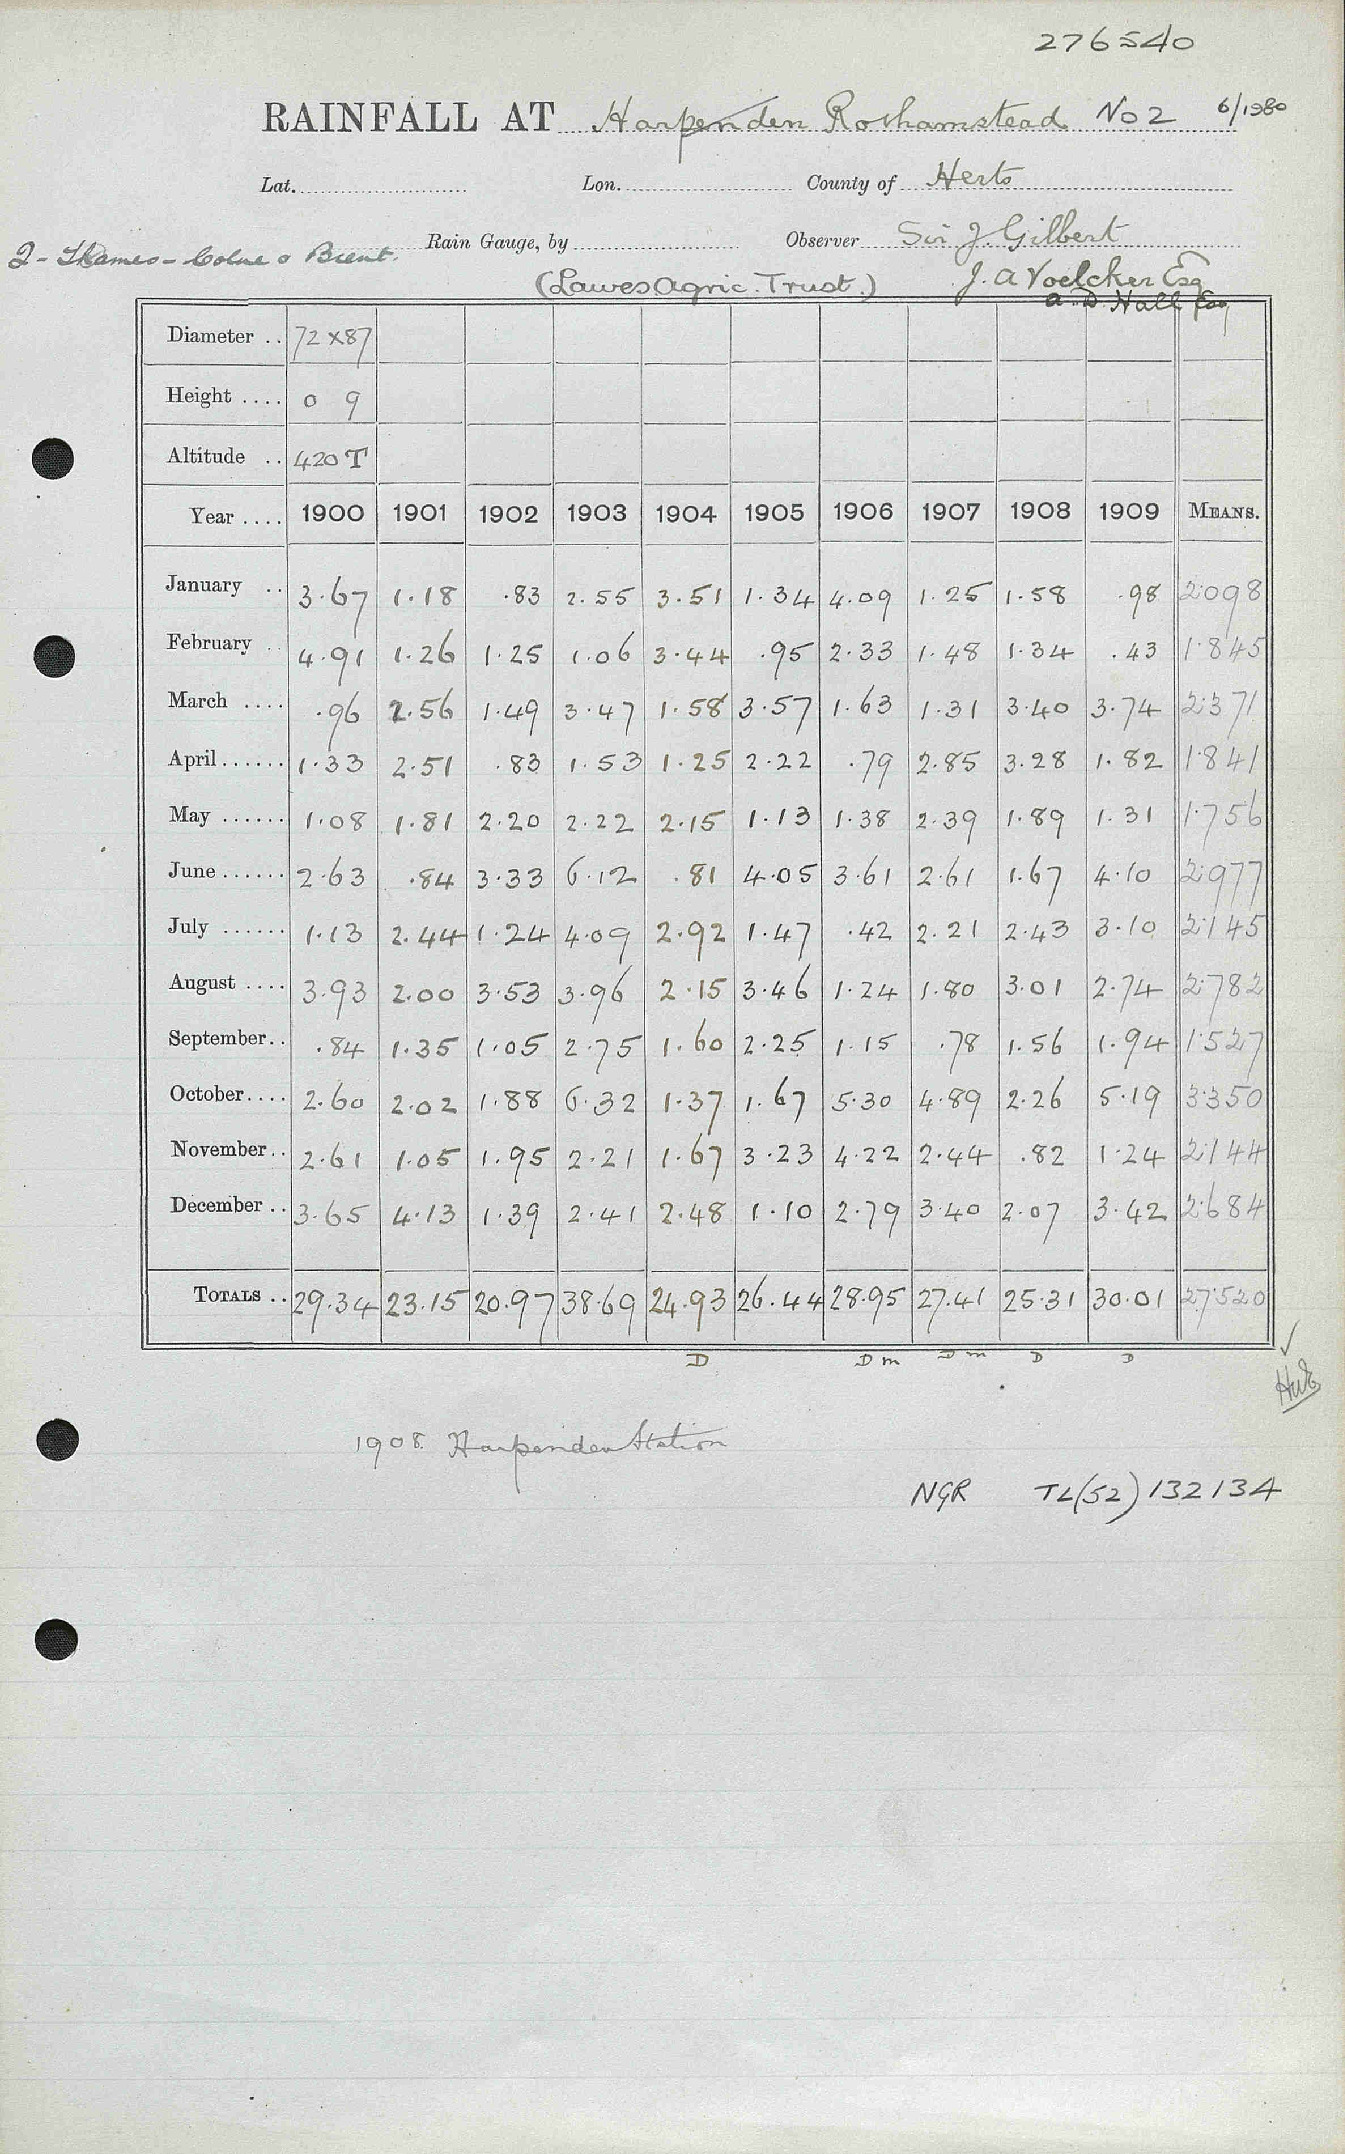 276540
RAINFALL AT Harpenden Rothamstead No 2 6/1980
Lat. Lon. County of Herts
Rain Gauge, by Observer Sir J. Gilbert
2 - Thames - Colne & Brent.
(Lawes Agric. Trust.) J. A Voelcker Esq
A. D Hall Esq
Diameter .. 72 x 87
Height .... 0 9
Altitude .. 420 T
Year .... 1900 1901 1902 1903 1904 1905 1906 1907 1908 1909 MEANS.
January .. 3.67 1.18 .83 2.55 3.51 1.34 4.09 1.25 1.58 .98 2.098
February .. 4.91 1.26 1.25 1.06 3.44 .95 2.33 1.48 1.34 .43 1.845
March .... .96 2.56 1.49 3.47 1.58 3.57 1.63 1.31 3.40 3.74 2.371
April ...... 1.33 2.51 .83 1.53 1.25 2.22 .79 2.85 3.28 1.82 1.841
May ...... 1.08 1.81 2.20 2.22 2.15 1.13 1.38 2.39 1.89 1.31 1.756
June ...... 2.63 .84 3.33 6.12 .81 4.05 3.61 2.61 1.67 4.10 2.977
July ...... 1.13 2.44 1.24 4.09 2.92 1.47 .42 2.21 2.43 3.10 2.145
August .... 3.93 2.00 3.53 3.96 2.15 3.46 1.24 1.80 3.01 2.74 2.782
September.. .84 1.35 1.05 2.75 1.60 2.25 1.15 .78 1.56 1.94 1.527
October.... 2.60 2.02 1.88 6.32 1.37 1.67 5.30 4.89 2.26 5.19 3.350
November.. 2.61 1.05 1.95 2.21 1.67 3.23 4.22 2.44 .82 1.24 2.144
December .. 3.65 4.13 1.39 2.41 2.48 1.10 2.79 3.40 2.07 3.42 2.684
TOTALS .. 29.34 23.15 20.97 38.69 24.93 26.44 28.95 27.41 25.31 30.01 27.520
D D m D m D D
1908. Harpenden Station
NGR TL(52) 132134